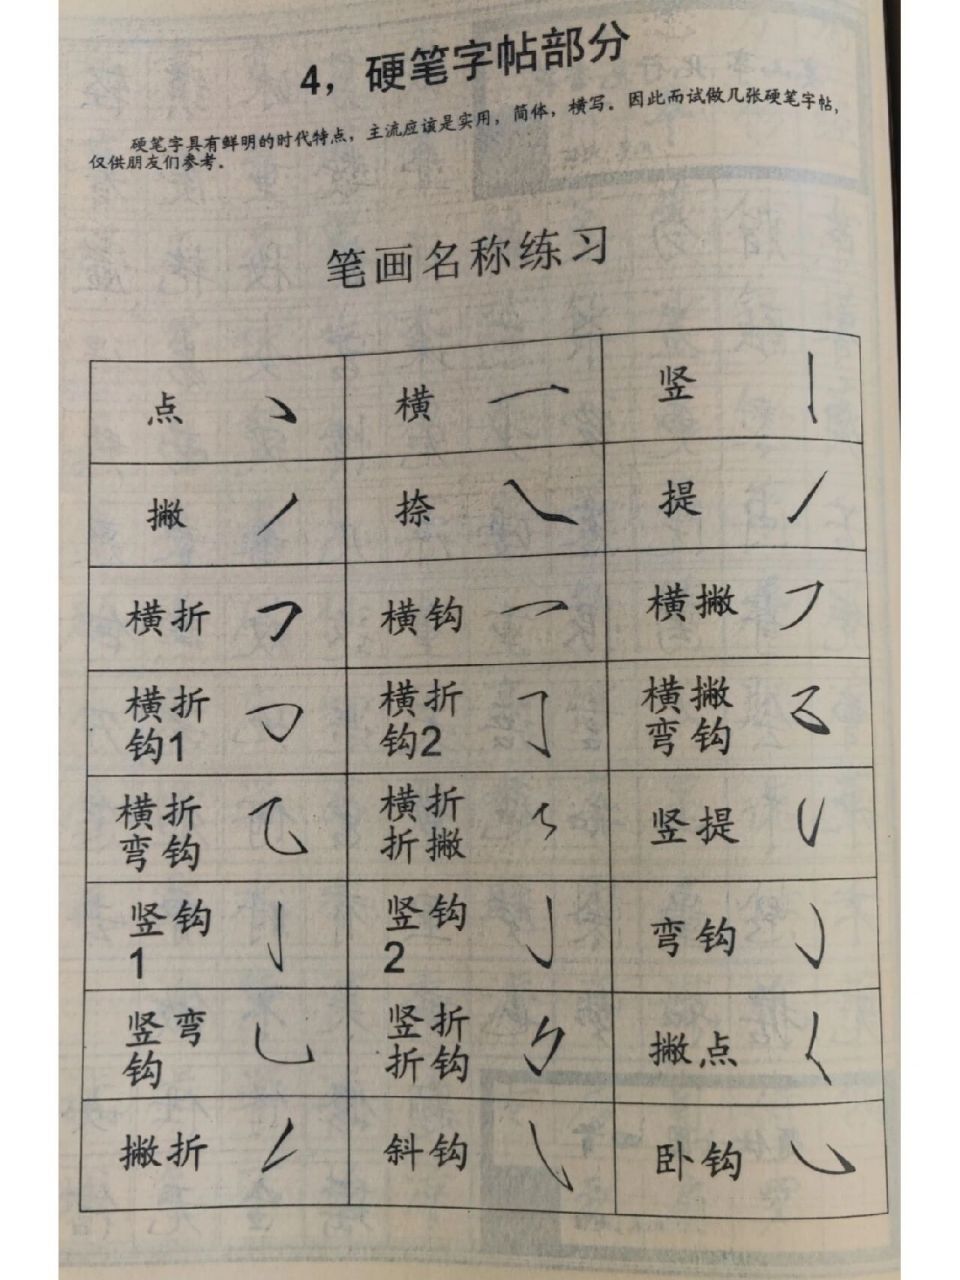 4，硬笔字帖部分
硬笔字具有鲜明的时代特点，主流应该是实用，简体，横写。因此而试做几张硬笔字帖，
仅供朋友们参考。
笔画名称练习
点 丶 横 一 竖 丨
撇 ㇒ 捺 ㇏ 提 ㇀
横折 ㇕ 横钩 ㇖ 横撇 ㇇
横折
钩1 ㇆
横折
钩2 ㇆
横撇
弯钩 ㇌
横折
弯钩 ㇈
横折
折撇 ㇋
竖提 ㇙
竖钩
1 亅
竖钩
2 亅
弯钩 ㇁
竖弯
钩 ㇟
竖折
折钩 ㇉
撇点 ㇛
撇折 ㇜ 斜钩 ㇂ 卧钩 ㇃